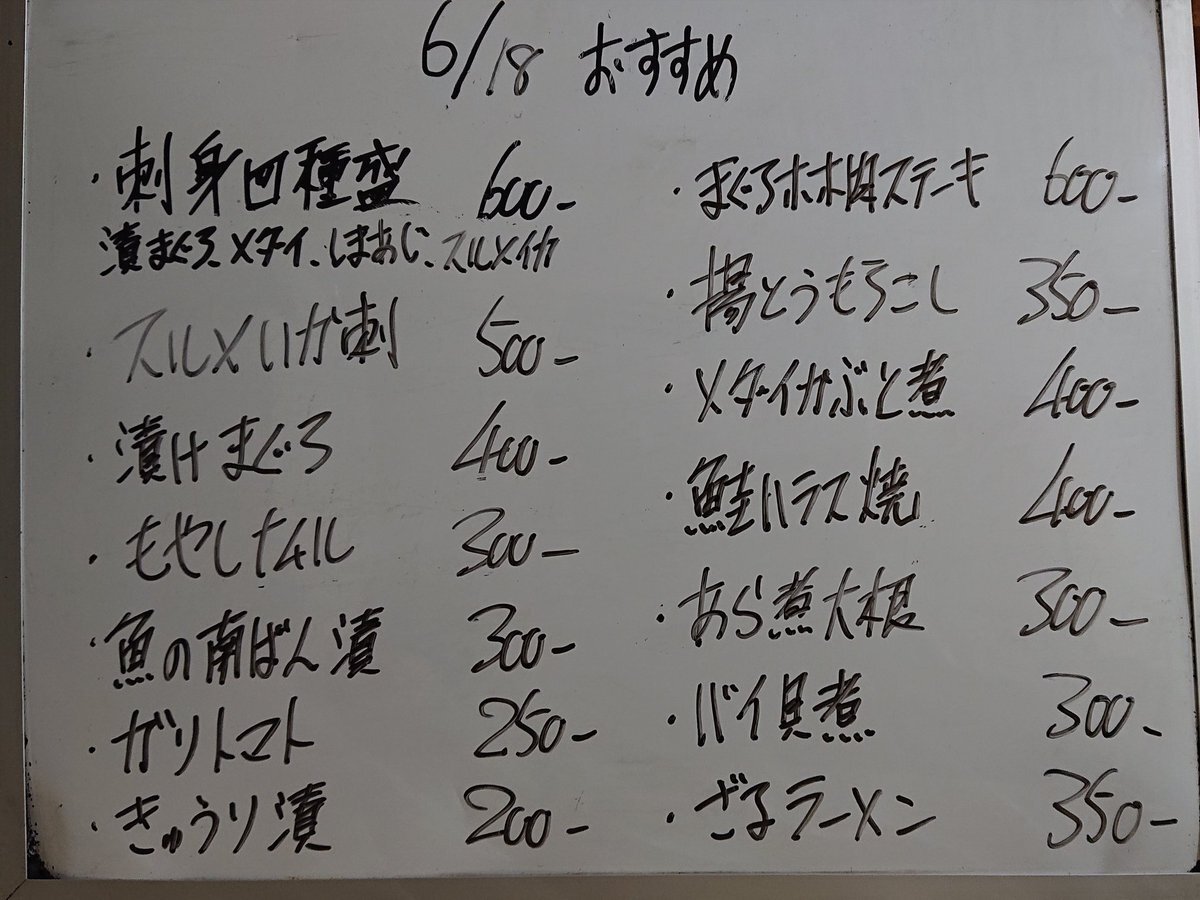 6/18 おすすめ
・刺身四種盛 600-
漬まぐろ、メダイ、しまあじ、スルメイカ
・スルメいか刺 500-
・漬けまぐろ 400-
・もやしナムル 300-
・魚の南ばん漬 300-
・ガリトマト 250-
・きゅうり漬 200-
・まぐろホホ肉ステーキ 600-
・揚とうもろこし 350-
・メダイかぶと煮 400-
・鮭ハラス焼 400-
・あら煮大根 300-
・バイ貝煮 300-
・ざるラーメン 350-